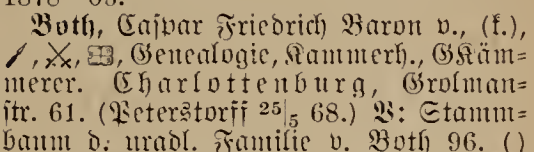 1878-08.
Both, Caspar Friedrich Baron v., (k.),
Genealogie, Kammerh., GKäm=
merer. Charlottenburg, Grolman=
str. 61. (Peterstorff 25|5 68.) B: Stamm=
baum d. uradl. Familie v. Both 96. ()